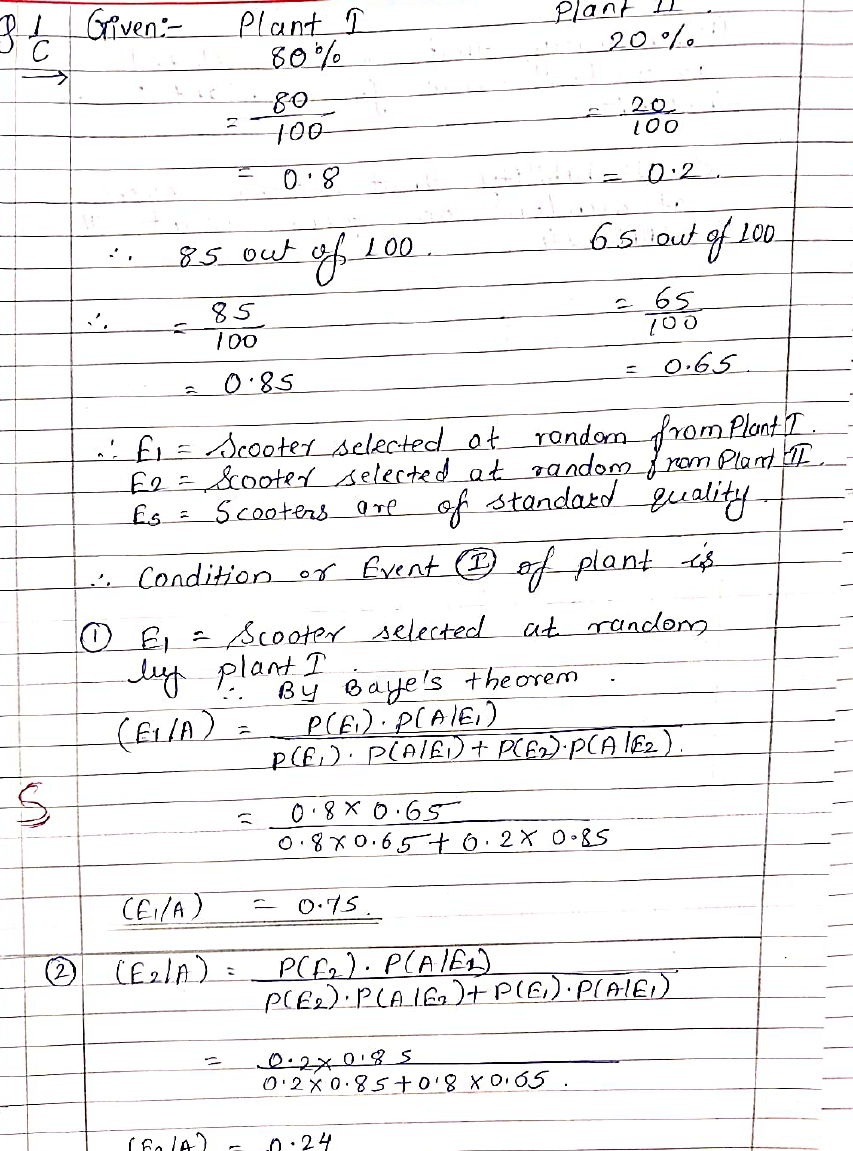 Q 1 Given:- Plant I Plant II
C 80% 20%
= 80/100 = 20/100
= 0.8 = 0.2
∴ 85 out of 100. 65 out of 100
∴ = 85/100 = 65/100
= 0.85 = 0.65
∴ E1 = Scooter selected at random from Plant I.
E2 = Scooter selected at random from Plant II.
Es = Scooters are of standard quality.
∴ Condition or Event Ⓘ of plant is
① E1 = Scooter selected at random
by plant I.
∴ By Baye's theorem.
(E1/A) = P(E1). P(A|E1)
P(E1). P(A|E1) + P(E2).P(A|E2).
S
= 0.8 x 0.65
0.8 x 0.65 + 0.2 x 0.85
(E1/A) = 0.75.
② (E2|A) = P(E2). P(A|E2)
P(E2).P(A|E2) + P(E1).P(A|E1)
= 0.2 x 0.85
0.2 x 0.85 + 0.8 x 0.65.
(E2/A) = 0.24